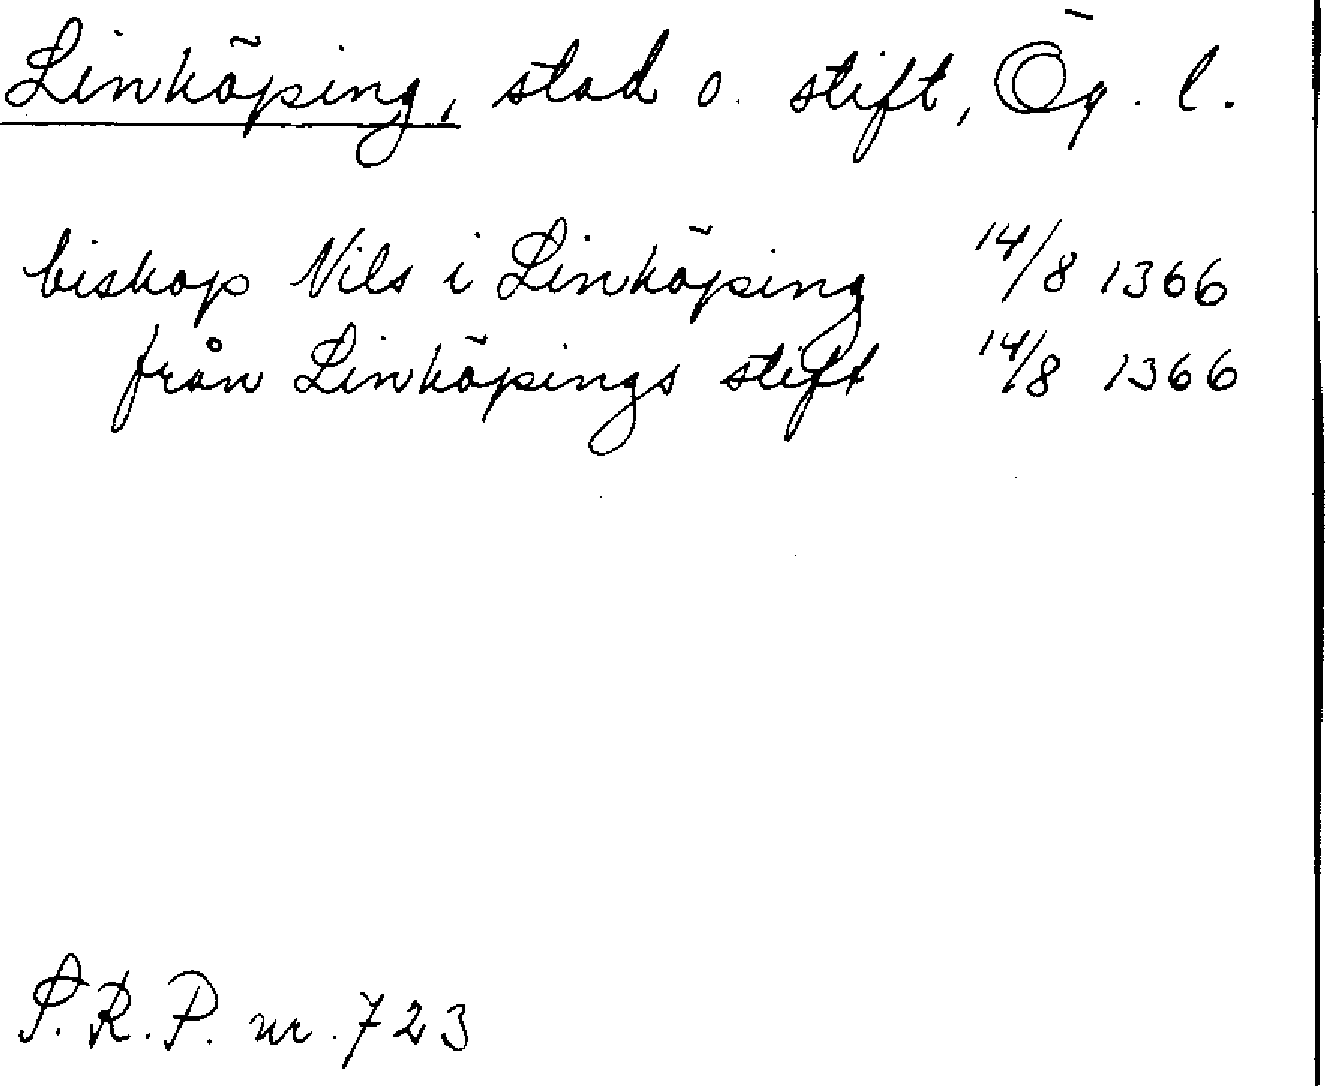 Linköping, stad o. stift, Ög. l.
biskop Nils i Linköping 14/8 1366
från Linköpings stift 14/8 1366
S.R.P. nr. 723